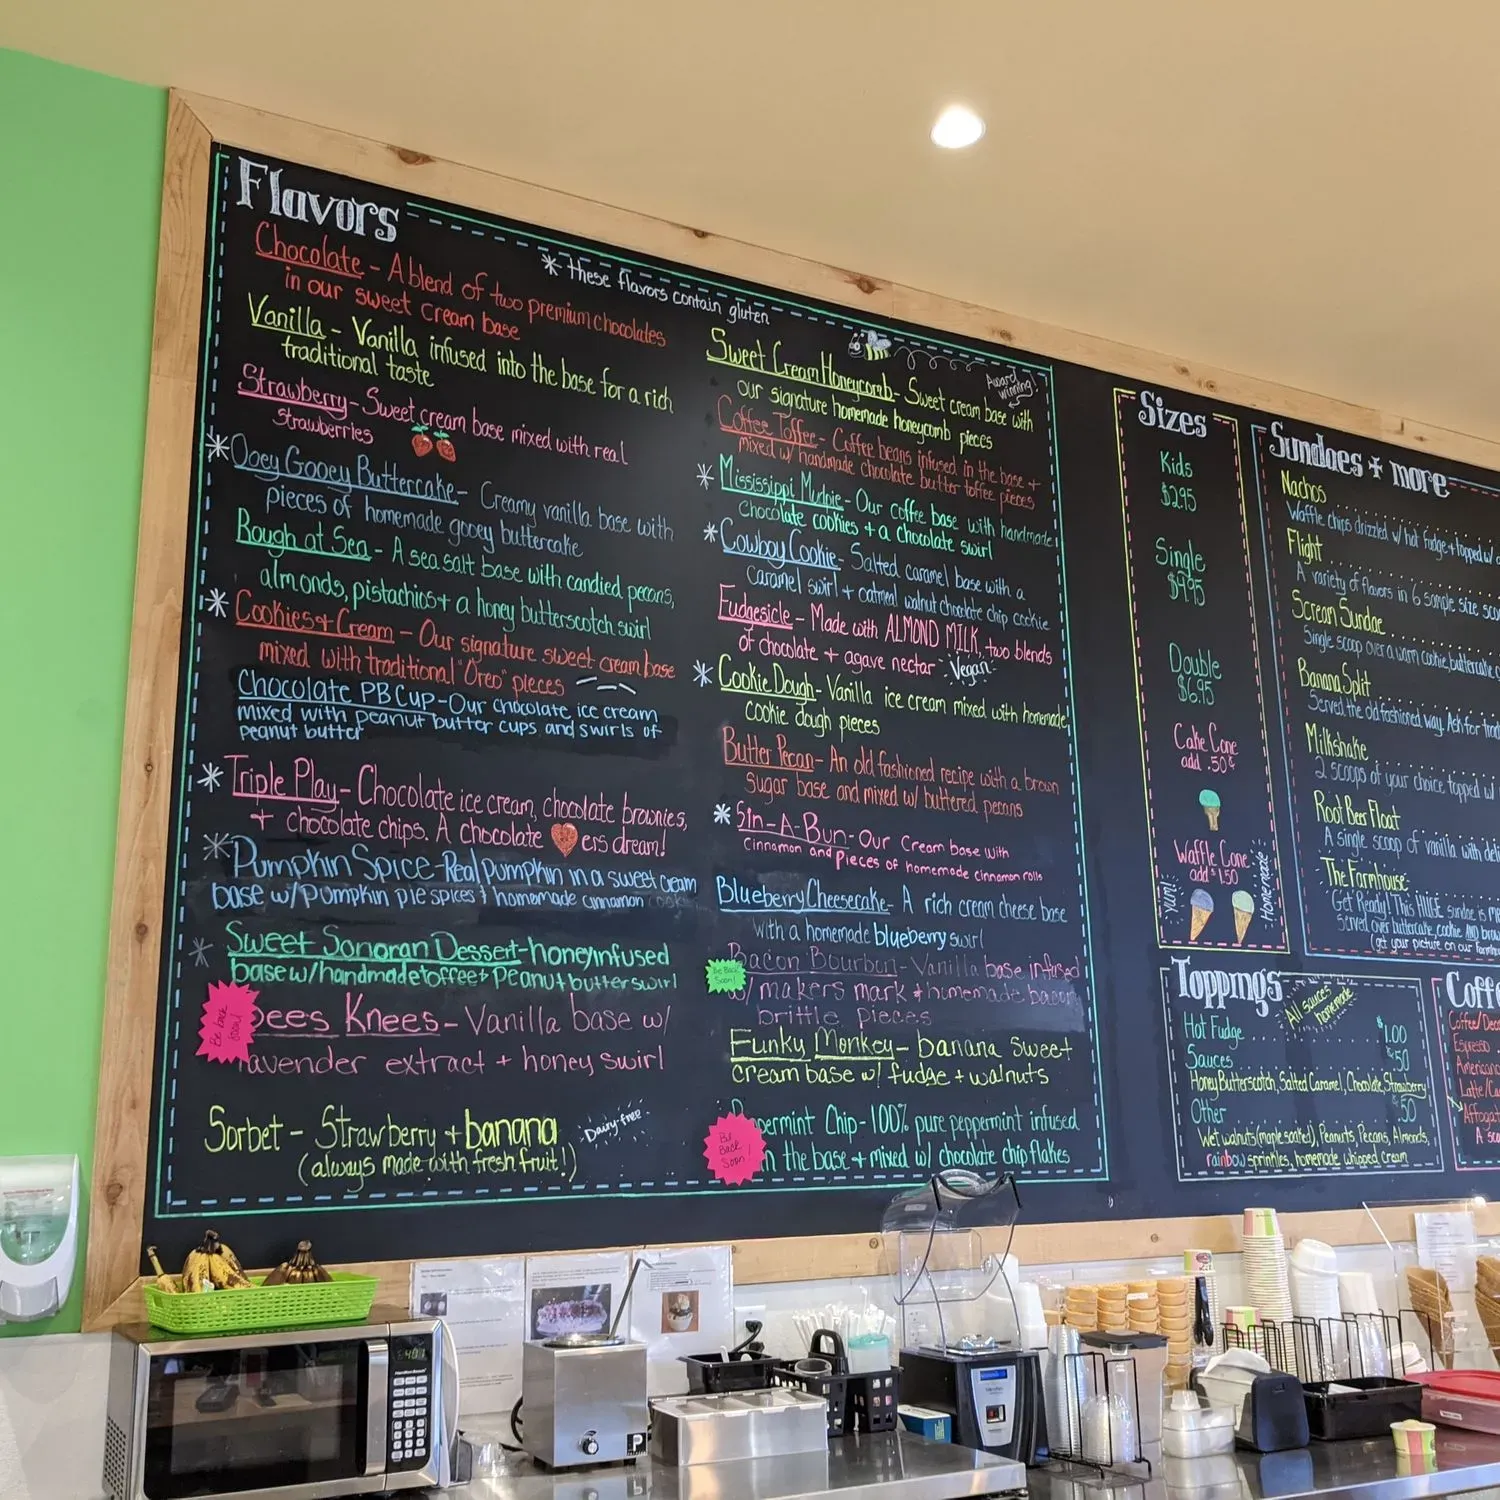 Flavors
* these flavors contain gluten
Chocolate - A blend of two premium chocolates
in our sweet cream base
Vanilla - Vanilla infused into the base for a rich
traditional taste
Strawberry - Sweet cream base mixed with real
strawberries
* Ooey Gooey Buttercake - Creamy vanilla base with
pieces of homemade gooey buttercake
Rough at Sea - A sea salt base with candied pecans,
almonds, pistachios + a honey butterscotch swirl
* Cookies + Cream - Our signature sweet cream base
mixed with traditional "Oreo" pieces
Chocolate PB Cup - Our chocolate ice cream
mixed with peanut butter cups and swirls of
peanut butter
* Triple Play - Chocolate ice cream, chocolate brownies,
+ chocolate chips. A chocolate ers dream!
* Pumpkin Spice - Real pumpkin in a sweet cream
base w/ pumpkin pie spices + homemade cinnamon
* Sweet Sonoran Dessert - honey infused
base w/ handmade toffee + Peanut butter swirl
Be back soon!
Bees Knees - Vanilla base w/
lavender extract + honey swirl
Sorbet - Strawberry + banana
(always made with fresh fruit!)
Dairy-free
Sweet Cream Honeycomb - Sweet cream base with
our signature homemade honeycomb pieces
Award winning!
Coffee Toffee - Coffee beans infused in the base +
mixed w/ handmade chocolate butter toffee pieces
* Mississippi Mudpie - Our coffee base with handmade
chocolate cookies + a chocolate swirl
* Cowboy Cookie - Salted caramel base with a
caramel swirl + oatmeal walnut chocolate chip cookie
Fudgesicle - Made with ALMOND MILK, two blends
of chocolate + agave nectar Vegan
* Cookie Dough - Vanilla ice cream mixed with homemade
cookie dough pieces
Butter Pecan - An old fashioned recipe with a brown
sugar base and mixed w/ buttered pecans
* Sin-A-Bun - Our Cream base with
cinnamon and pieces of homemade cinnamon rolls
Blueberry Cheesecake - A rich cream cheese base
with a homemade blueberry swirl
Be Back Soon!
Bacon Bourbon - Vanilla base infused
w/ makers mark + homemade bacon
brittle pieces
Funky Monkey - banana sweet
cream base w/ fudge + walnuts
Be Back Soon!
Peppermint Chip - 100% pure peppermint infused
in the base + mixed w/ chocolate chip flakes
Sizes
Kids
$2.95
Single
$4.95
Double
$6.95
Cake Cone
add .50¢
Waffle Cone
add $1.50
Yum!
Homemade
Sundaes + more
Nachos
Waffle chips drizzled w/ hot fudge + topped w/
Flight
A variety of flavors in 6 sample size
Scream Sundae
Single scoop over a warm cookie, buttercake
Banana Split
Served the old fashioned way. Ask for
Milkshake
2 scoops of your choice topped w/
Root Beer Float
A single scoop of vanilla with
The Farmhouse
Get Ready! This HUGE sundae is
served over buttercake, cookie AND
(get your picture on our
Toppings
All sauces homemade
Hot Fudge $1.00
Sauces .50
Honey Butterscotch, Salted Caramel, Chocolate, Strawberry
Other .50
Wet walnuts (maple soaked), Peanuts, Pecans, Almonds,
rainbow sprinkles, homemade whipped cream
Coffe
Coffee/Deca
Espresso
American
Latte/Ca
Affogat
A sco